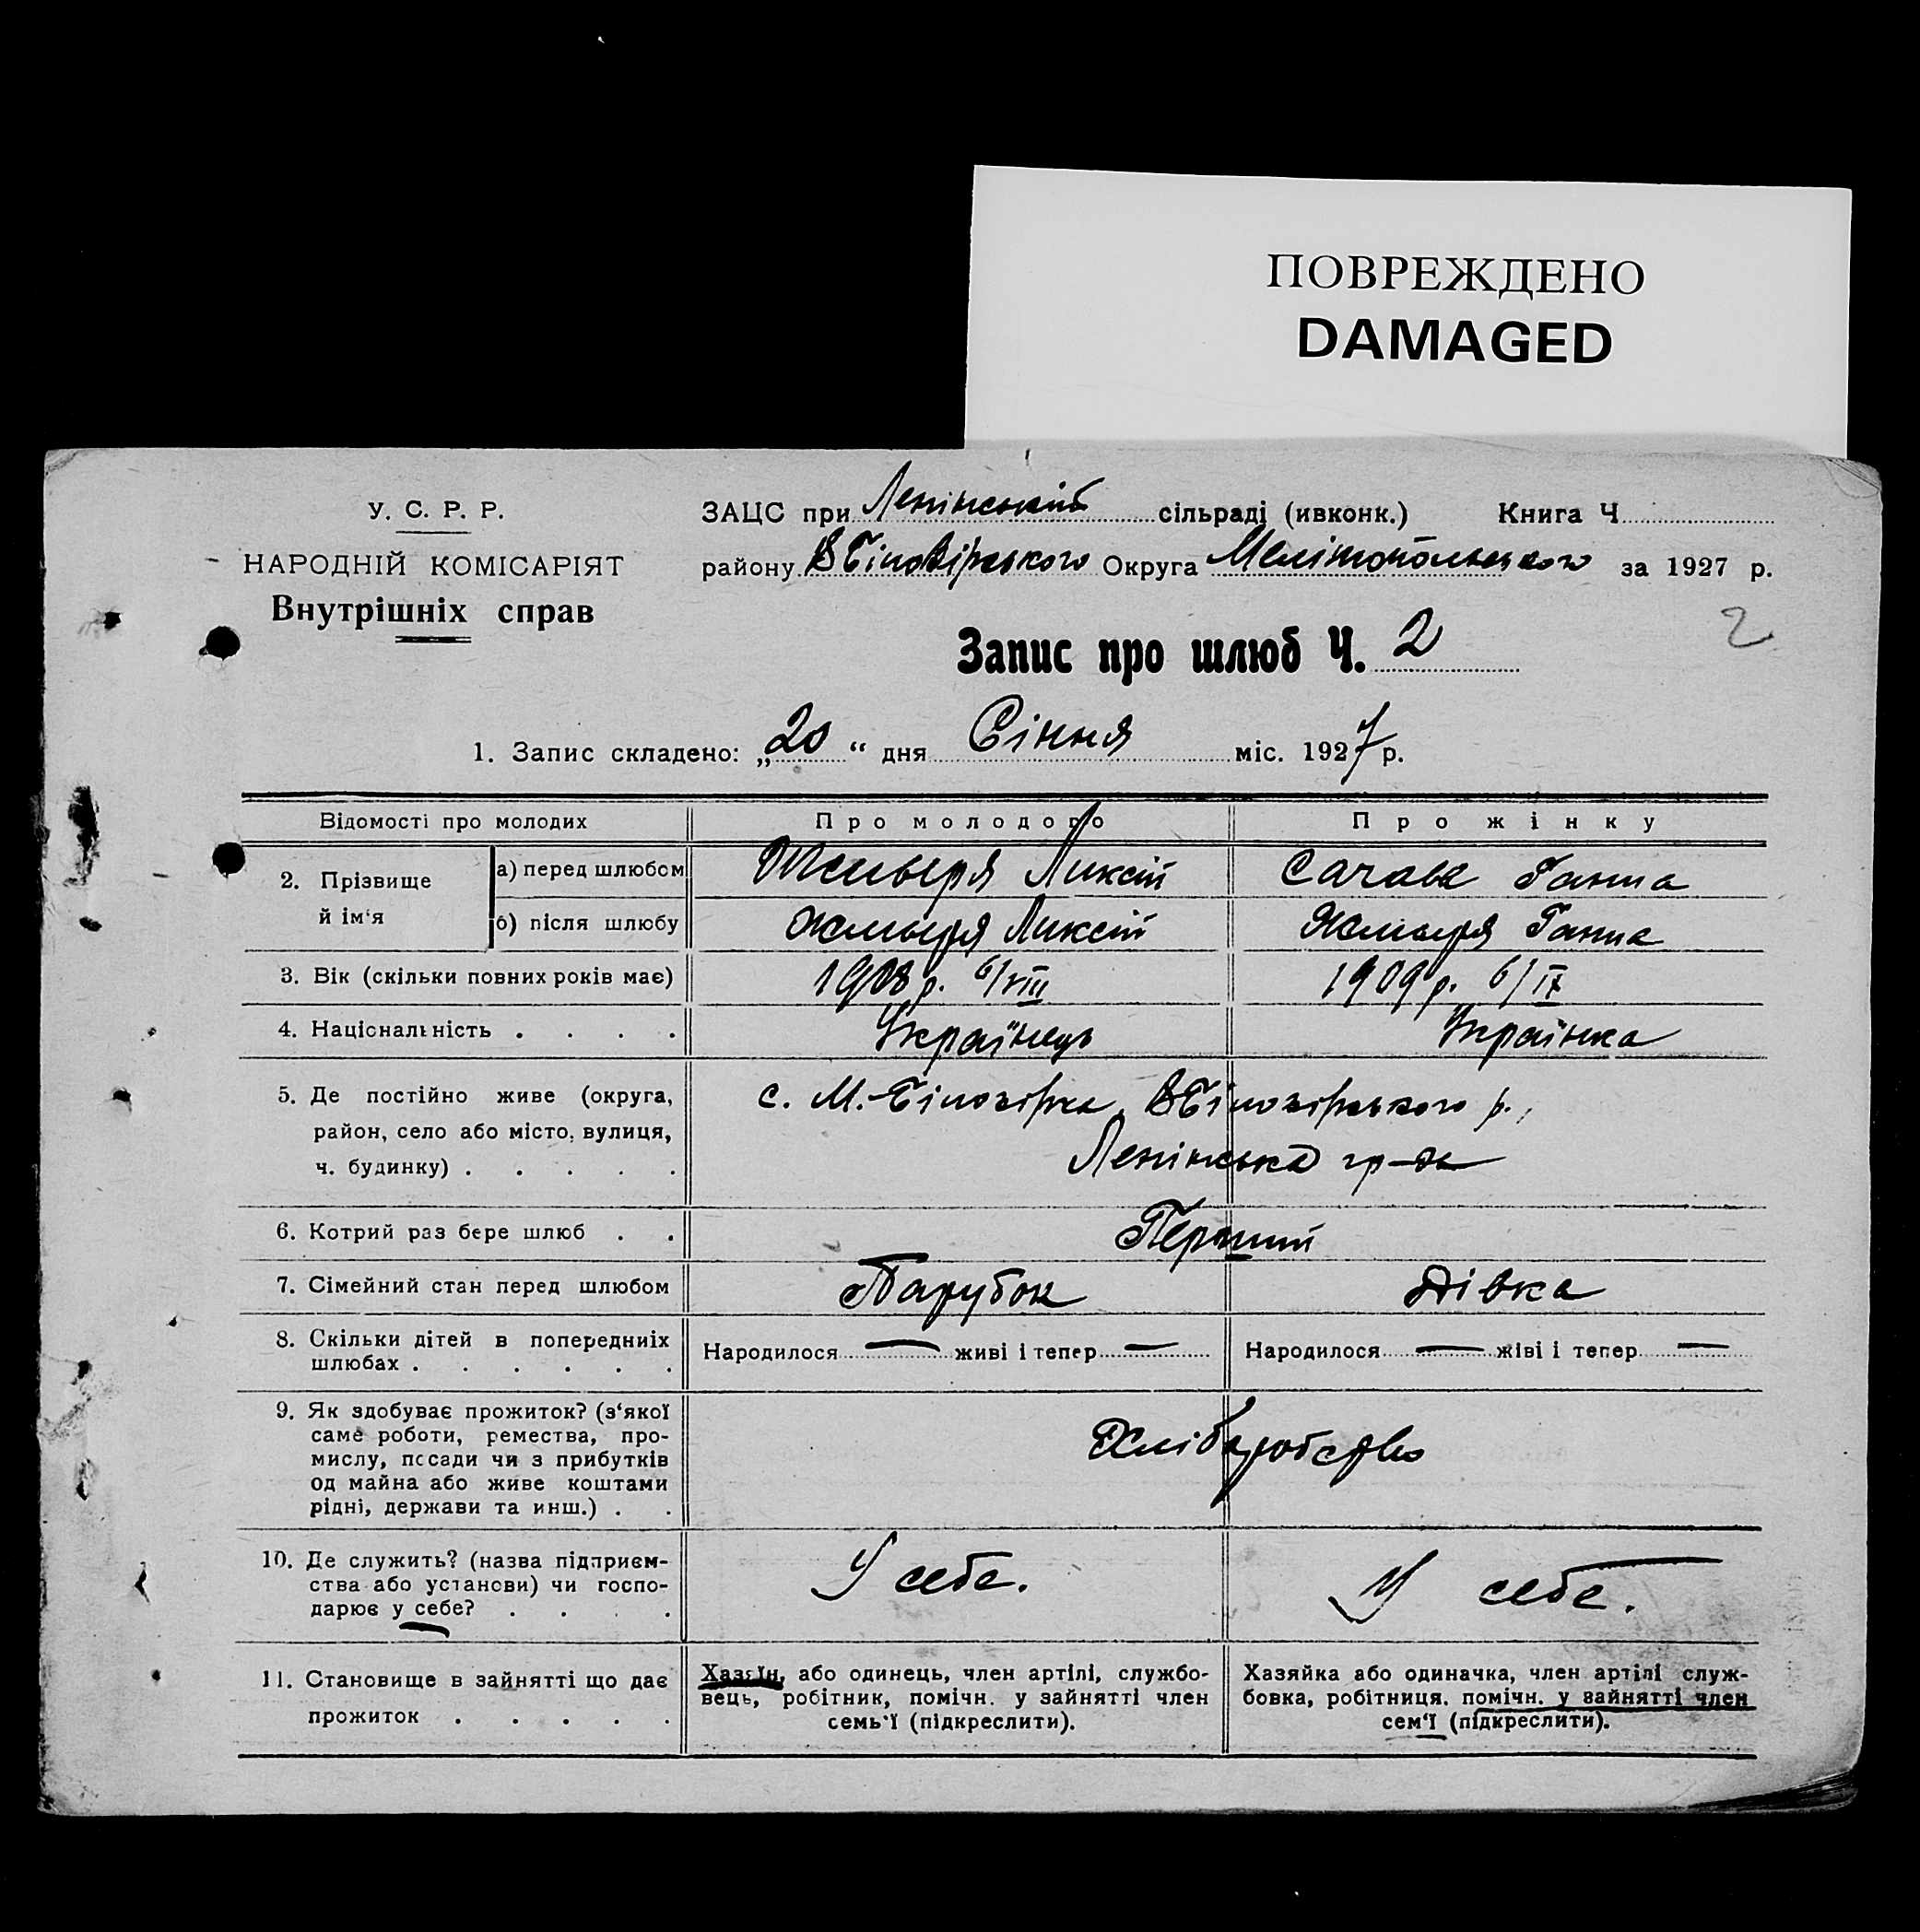 ПОВРЕЖДЕНО
DAMAGED
У. С. Р. Р.
НАРОДНІЙ КОМІСАРІЯТ
Внутрішніх справ
ЗАЦС при Ленінській сільраді (ивконк.) Книга Ч.
району ВБілозірського Округа Мелітопольського за 1927 р.
Запис про шлюб Ч. 2
2
1. Запис складено: „20“ дня Січня міс. 1927 р.
Відомості про молодих Про молодого Про жінку
2. Прізвище й ім‘я
а) перед шлюбом Жмыря Ликсій Ганна
б) після шлюбу Жмыря Ликсій Жмыря Ганна
3. Вік (скільки повних років має) 1908 р. 6/VIII 1909 р. 6/IX
4. Національність . . . . Українець Українка
5. Де постійно живе (округа,
район, село або місто, вулиця,
ч. будинку) . . . . .
с. М.-Білозірка, ВБілозірського р.,
Ленінська гр-да
6. Котрий раз бере шлюб . . Перший
7. Сімейний стан перед шлюбом Парубок Дівка
8. Скільки дітей в попередніх
шлюбах . . . . . .
Народилося — живі і тепер — Народилося — жіві і тепер —
9. Як здобуває прожиток? (з‘якої
саме роботи, ремества, про-
мислу, посади чи з прибутків
од майна або живе коштами
рідні, держави та инш.) . .
Хліборобство
10. Де служить? (назва підприєм-
ства або установи) чи госпо-
дарює у себе? . . . .
У себе. У себе.
11. Становище в зайнятті що дає
прожиток . . . . .
Хазяїн, або одинець, член артілі, службо-
вець, робітник, помічн. у зайнятті член
семь‘ї (підкреслити).
Хазяйка або одиначка, член артілі служ-
бовка, робітниця, помічн. у зайнятті член
сем‘ї (підкреслити).